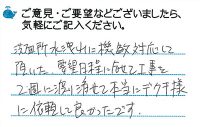 ご意見・ご要望などございましたら、
気軽にご記入ください。
洗面所水洩れに機敏対応して
頂いた。要望日程に合せて工事を
2回に渡り済せて本当にデクチ様
に依頼して良かったです。